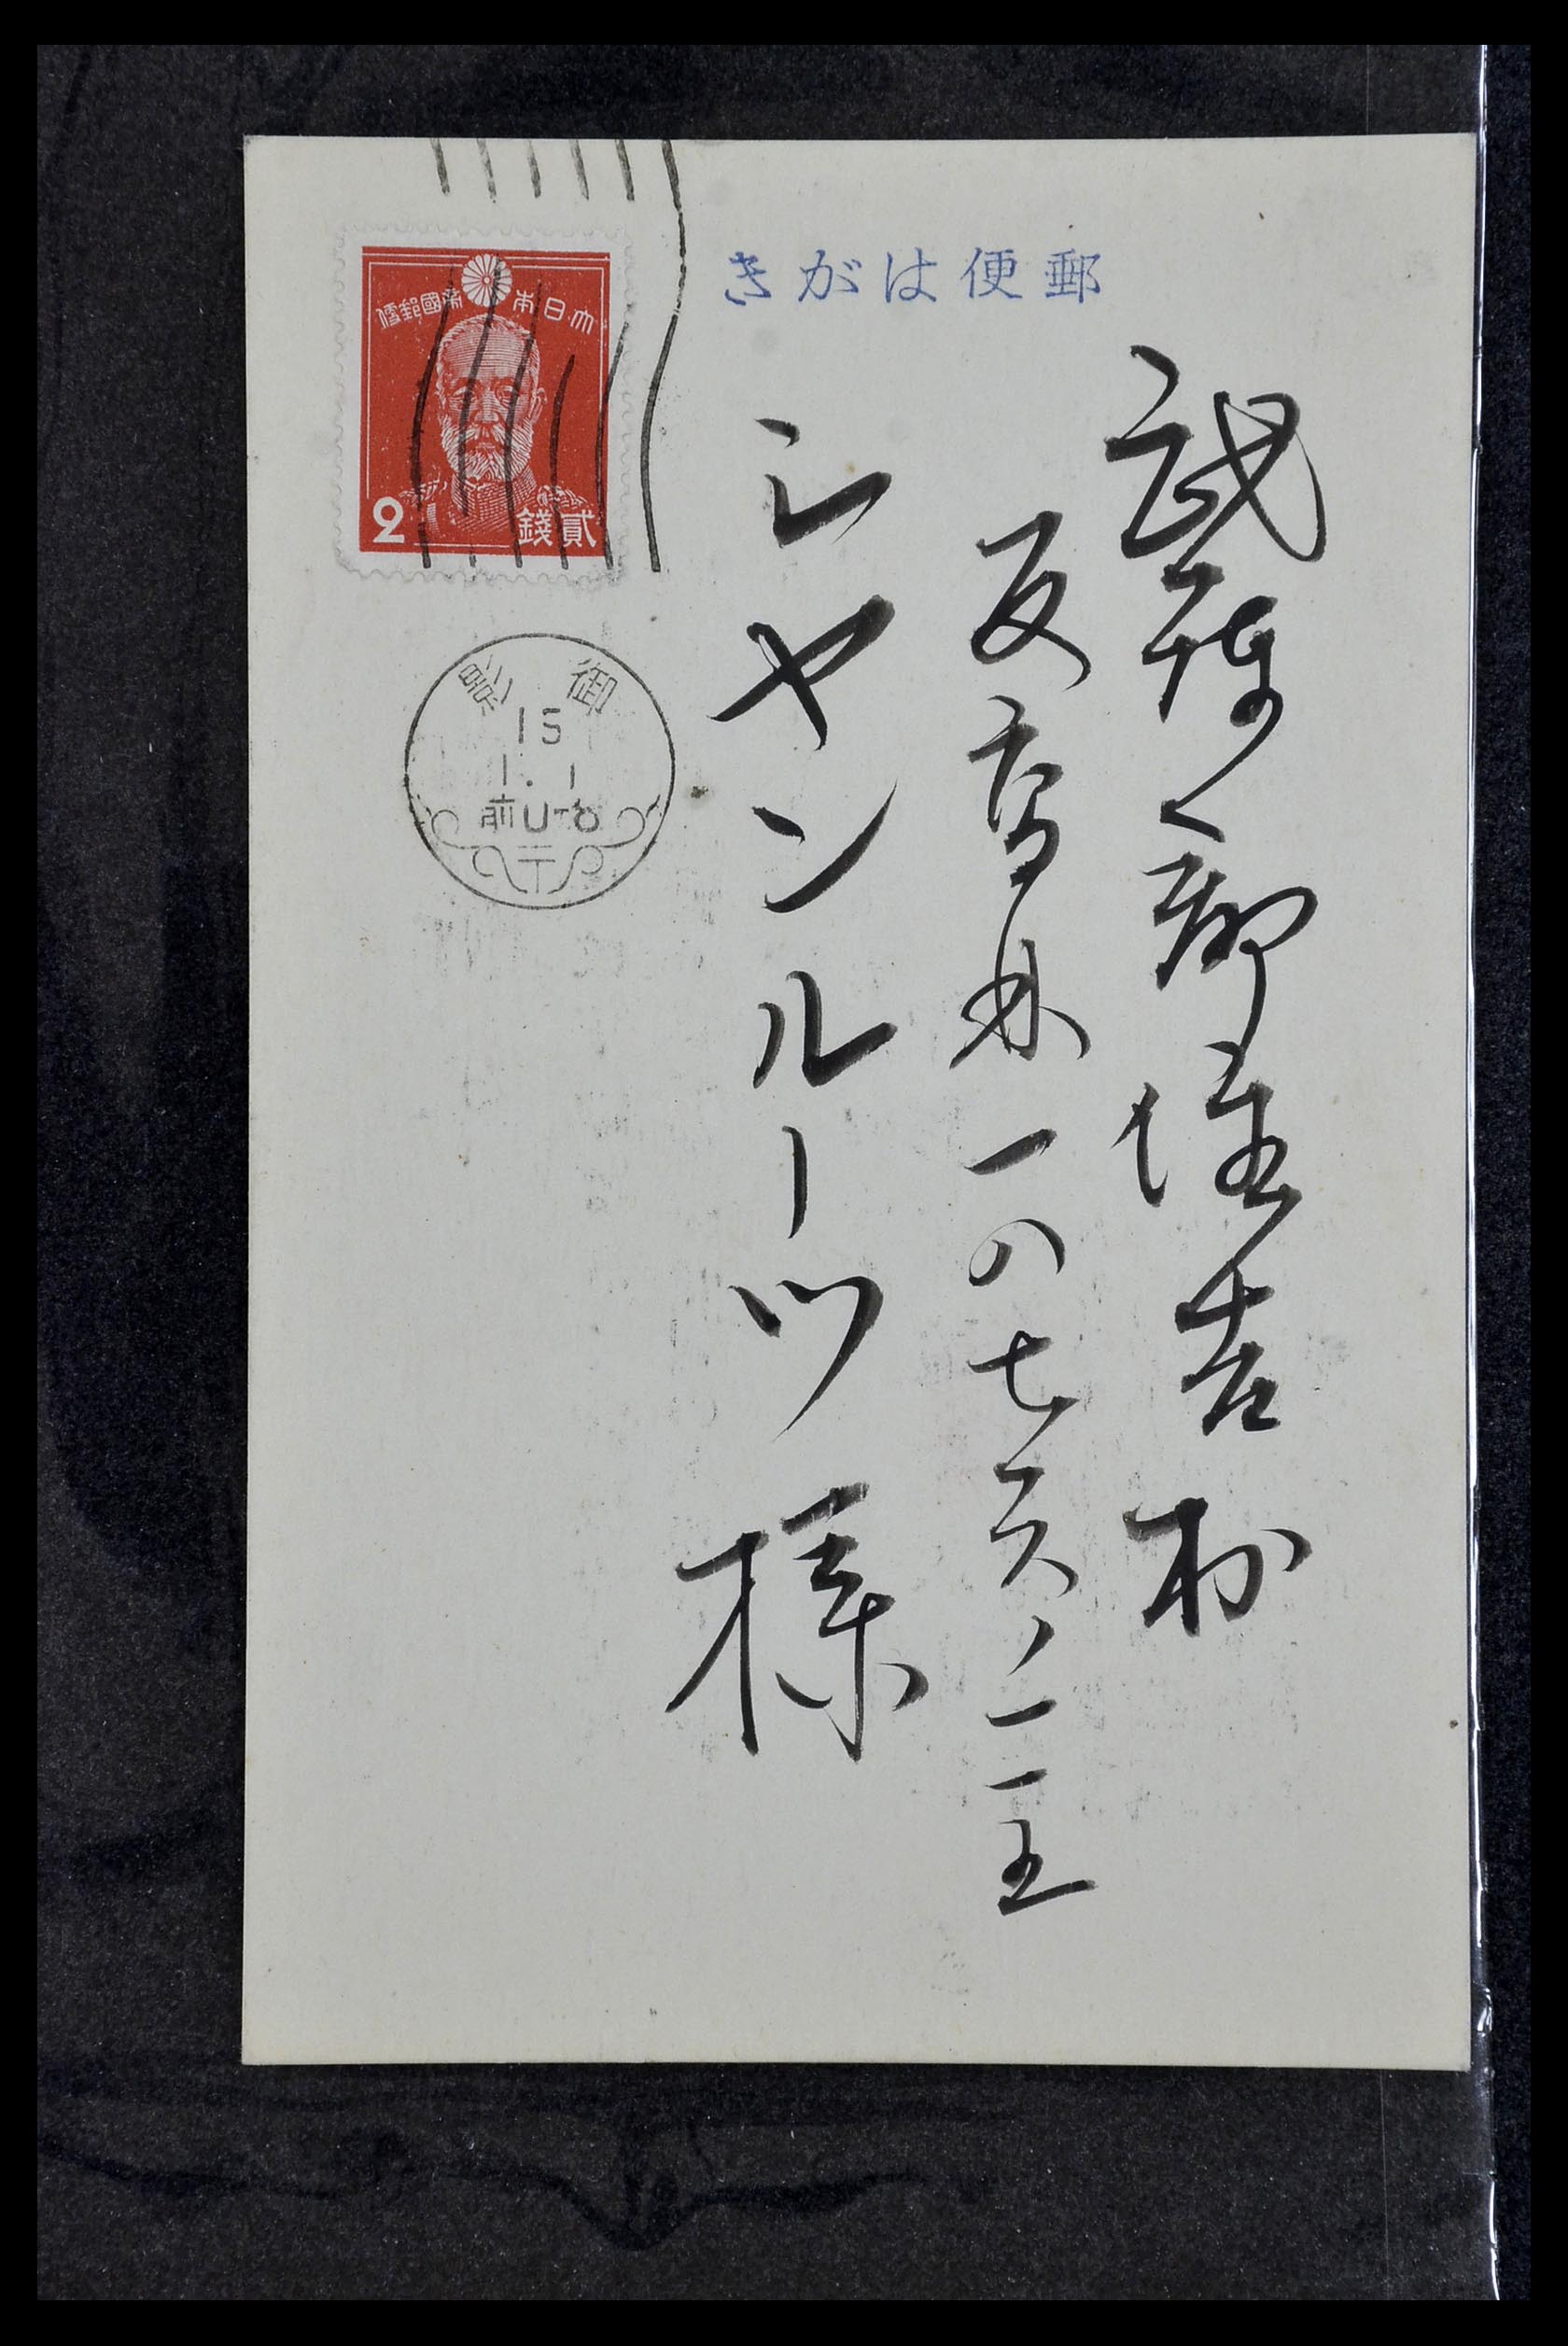 郵便はがき
大日本帝國郵便
2 貳錢
御影
15
1.1
前0-8
武庫郡住吉村
反高林一八七六ノ一五
シヤンルーツ様